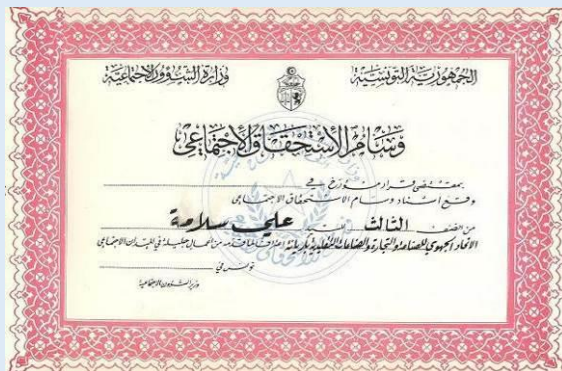 الجمهورية التونسية
وزارة الشؤون الاجتماعية
وسام الاستحقاق الاجتماعي
بمقتضى قرار مؤرخ في
وقع اسناد وسام الاستحقاق الاجتماعي
من الصنف الثالث علي سلامة
الاتحاد الجهوي للصناعة والتجارة والصناعات التقليدية اعترافا لما قدمه من اعمال جليلة في الميدان الاجتماعي
تونس في
وزير الشؤون الاجتماعية